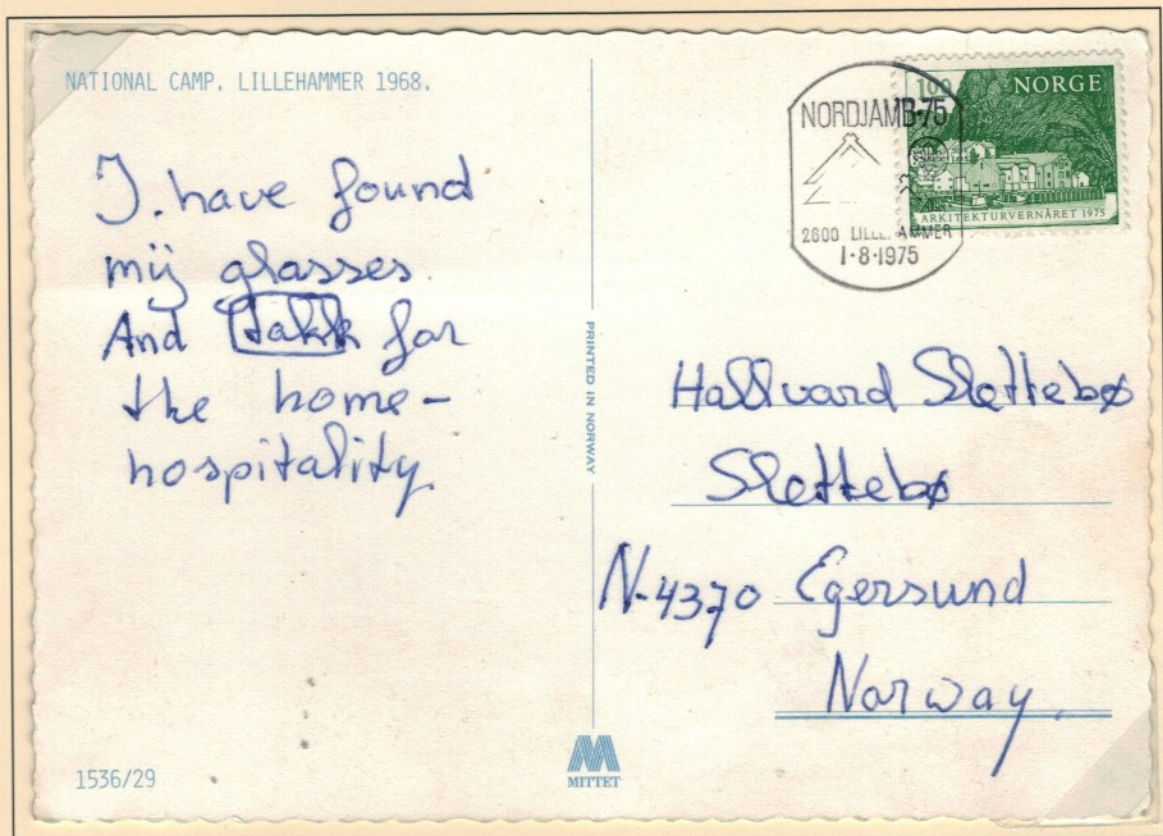 NATIONAL CAMP. LILLEHAMMER 1968.
I. have found
mij glasses.
And takk for
the home-
hospitality.
1536/29
PRINTED IN NORWAY
MITTET
NORDJAMB-75
2600 LILLEHAMMER
1·8·1975
100 NORGE
ARKITEKTURVERNÅRET 1975
Hallvard Slettebø
Slettebø
N-4370 Egersund
Norway.